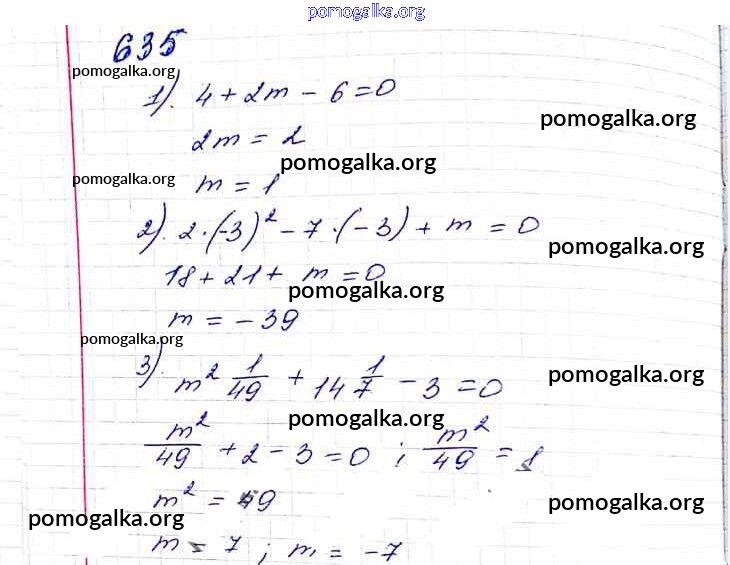 pomogalka.org
635
pomogalka.org
1). 4 + 2m - 6 = 0
pomogalka.org
2m = 2
pomogalka.org
pomogalka.org
m = 1
2). 2·(-3)² - 7·(-3) + m = 0
pomogalka.org
18 + 21 + m = 0
pomogalka.org
m = -39
pomogalka.org
3). m² 1/49 + 14 1/7 - 3 = 0
pomogalka.org
pomogalka.org
m²/49 + 2 - 3 = 0 ; m²/49 = 1
m² = 49
pomogalka.org
pomogalka.org
m = 7 ; m = -7